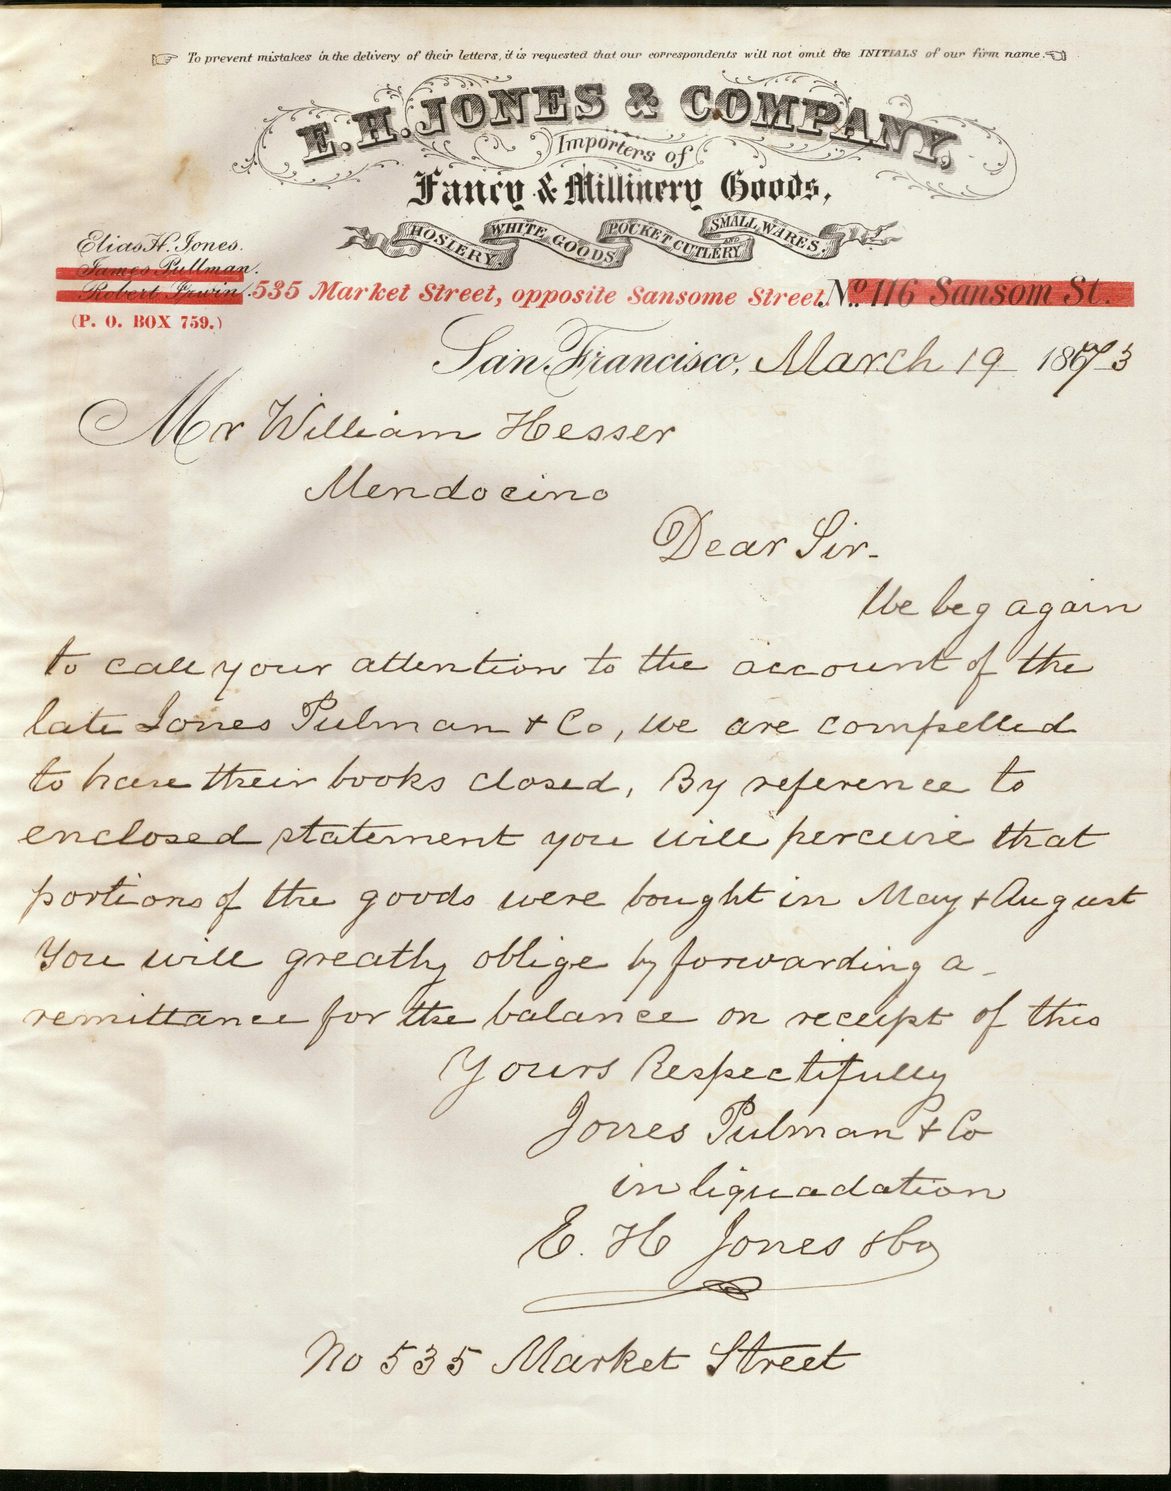 To prevent mistakes in the delivery of their letters, it is requested that our correspondents will not omit the INITIALS of our firm name.
E. H. JONES & COMPANY,
Importers of
Fancy & Millinery Goods,
HOSIERY, WHITE GOODS, POCKET CUTLERY AND SMALL WARES.
Elias H. Jones.
James Pullman.
Robert Irwin.
535 Market Street, opposite Sansome Street. No. 116 Sansom St.
(P. O. BOX 759.)
San Francisco, March 19 1873
Mr William Hesser
Mendocino
Dear Sir-
We beg again
to call your attention to the account of the
late Jones Pulman & Co, we are compelled
to have their books closed, By reference to
enclosed statement you will percieve that
portions of the goods were bought in May & August
You will greatly oblige by forwarding a
remittance for the balance on receipt of this
Yours Respectifully
Jones Pulman & Co
in liquadation
E. H Jones & Co
No 535 Market Street